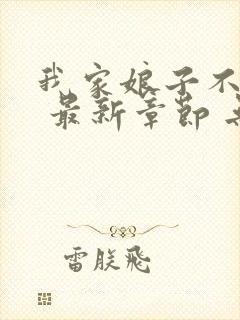 我家娘子不
最新章節
雷朕飛